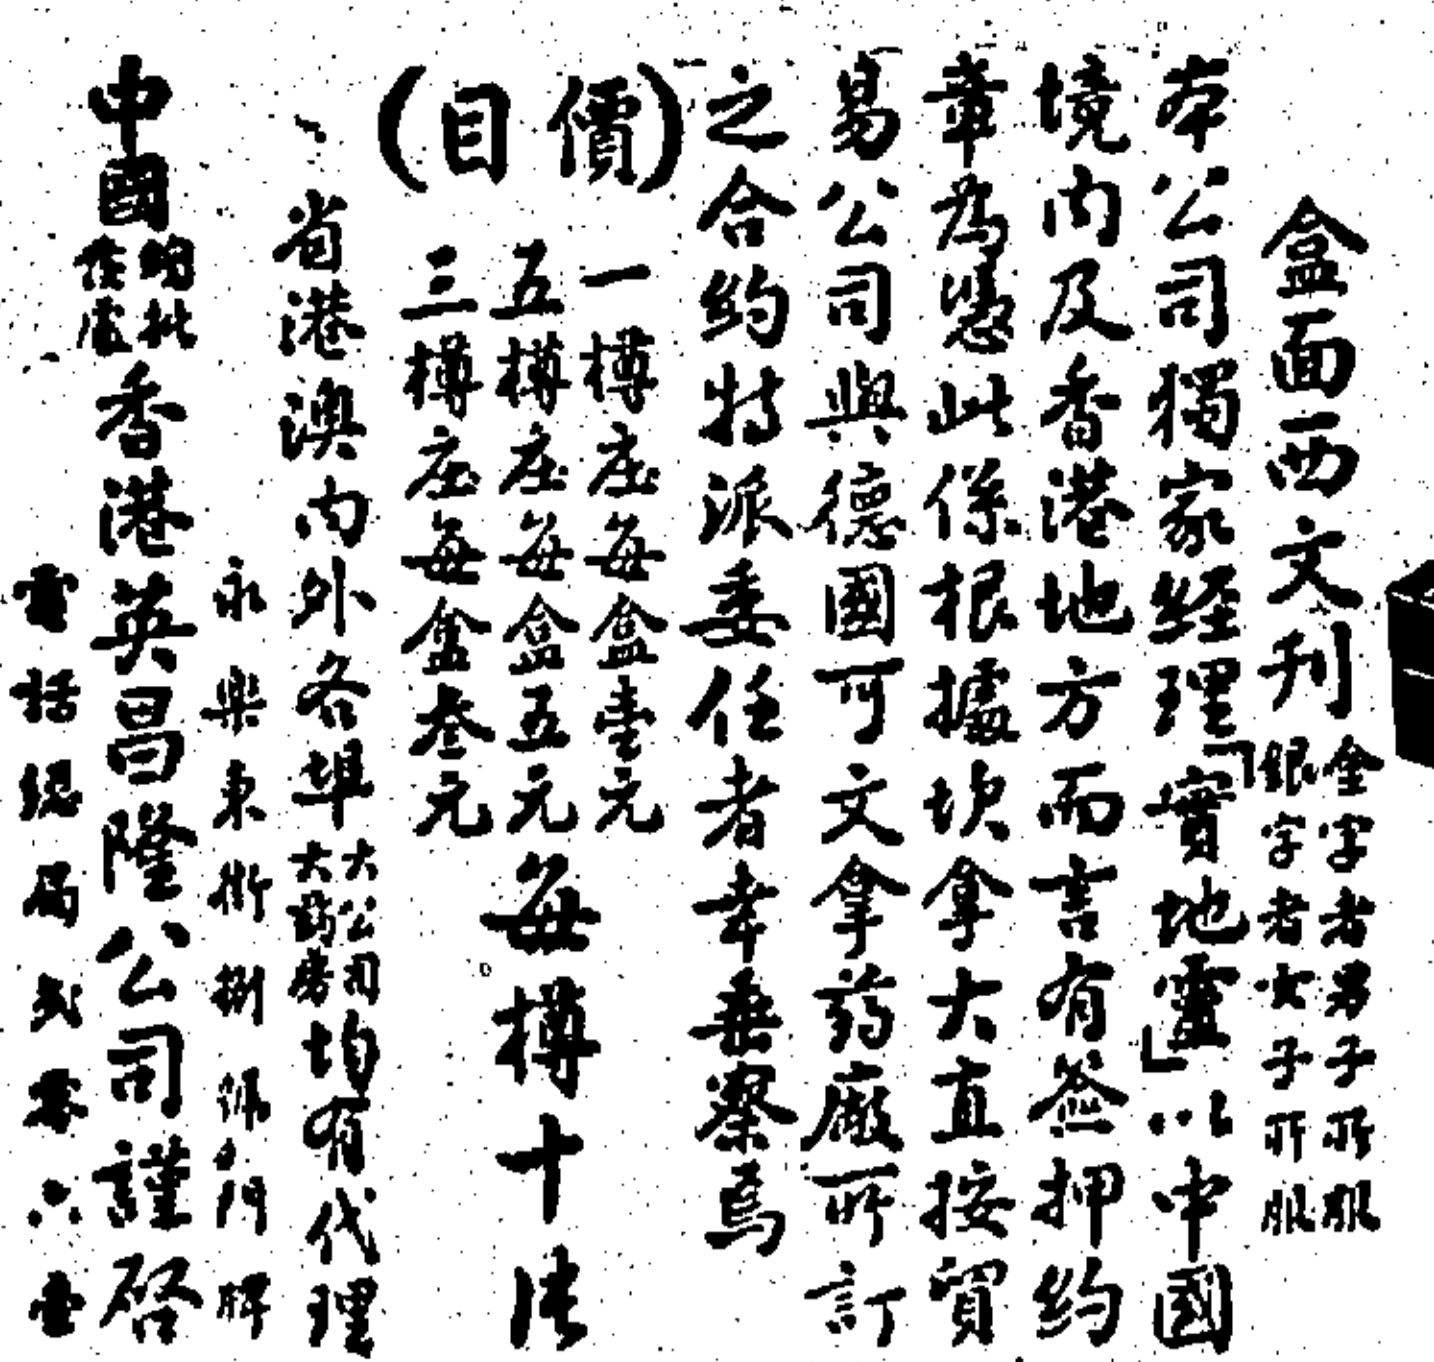 盒面西文刋
金字者男子所服
銀字者女子所服
本公司獨家経理「實地靈」以中國
境内及香港地方而言有簽押約
章為憑此係根據坎拿大直接貿
易公司與德國可文拿药廠所訂
之合約特派委任者幸垂察焉
(價目)
一樽庄每盒壹元
五樽庄每盒五元
三樽庄每盒叁元
每樽十法
省港澳内外各埠
大公司
大药房
均有代理
中國
的批
發處
香港英昌隆公司謹啓
永樂東街捌號門牌
電話總局弍零六壹